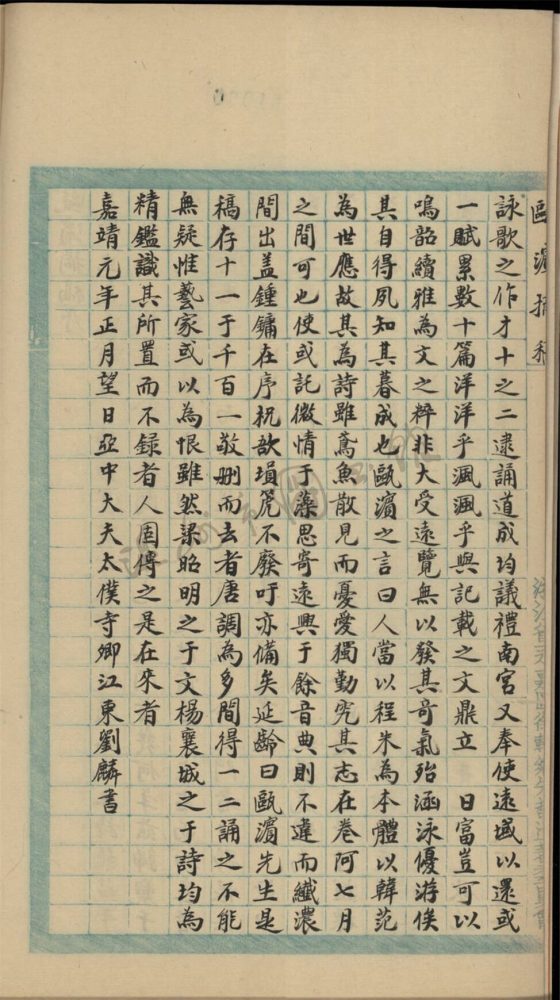 甌濱摘稿
詠歌之作才十之二逮誦道成均議禮南宮又奉使遠域以還或
一賦累數十篇洋洋乎渢渢乎與記載之文鼎立 日富豈可以
鳴韶續雅為文之粹非大受遠覽無以發其奇氣殆涵泳優游俟
其自得夙知其暮成也甌濱之言曰人當以程朱為本體以韓范
為世應故其為詩雖鳶魚散見而憂愛獨勤究其志在卷阿七月
之間可也使或託微情于藻思寄遠興于餘音典則不違而纖濃
間出盖鍾鏞在序柷敔塤箎不廢吁亦備矣延齡曰甌濱先生是
稿存十一于千百一敬刪而去者唐調為多間得一二誦之不能
無疑惟藝家或以為恨雖然梁昭明之于文楊襄城之于詩均為
精鑑識其所置而不録者人固傳之是在來者
嘉靖元年正月望日亞中大夫太僕寺卿江東劉麟書